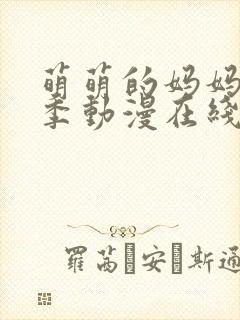 萌萌的妈妈
季動漫在綫
羅茜·安·斯通